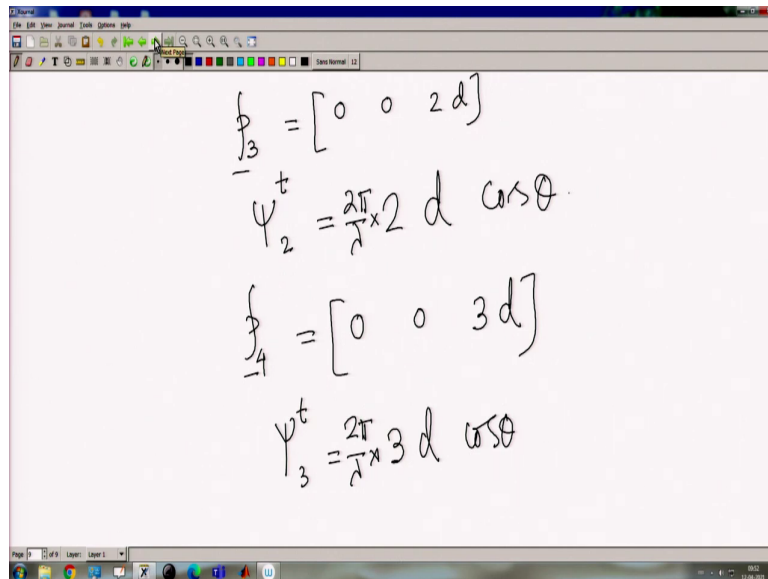 Journal
File Edit View Journal Tools Options Help
Next Page
Sans Normal 12
p₃ = [0 0 2d]
ψ₂ᵗ = 2π/λ × 2 d cosθ
p₄ = [0 0 3d]
ψ₃ᵗ = 2π/λ × 3 d cosθ
Page 9 of 9 Layer: Layer 1
0952